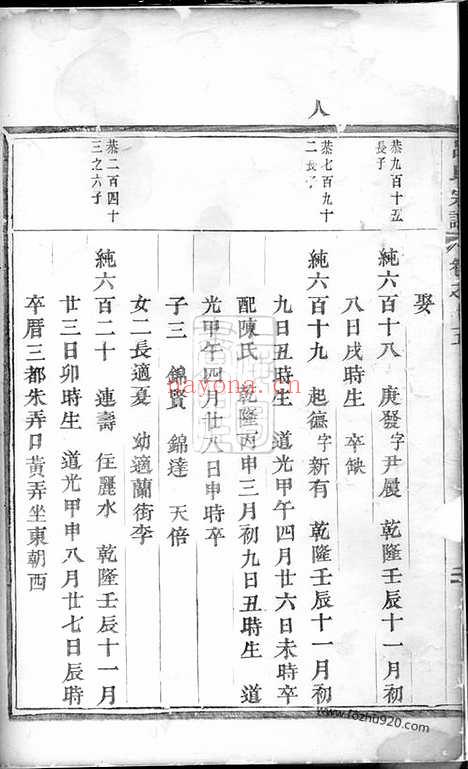 人
娶
恭九百十五
長子
純六百十八 庚發字尹履 乾隆壬辰十一月初
八日戌時生 卒缺
恭七百九十
二長子
純六百十九 起德字新有 乾隆壬辰十一月初
九日丑時生 道光甲午四月廿六日未時卒
配陳氏 乾隆丙申三月初九日丑時生 道
光甲午四月廿八日申時卒
子三 錦賢 錦達 天倍
女二長適夏 幼適蘭街李
恭二百四十
三之六子
純六百二十 連壽 住麗水 乾隆壬辰十一月
廿三日卯時生 道光甲申八月廿七日辰時
卒厝三都朱弄口黃弄坐東朝西
nayona.cn
www.fozhu920.com